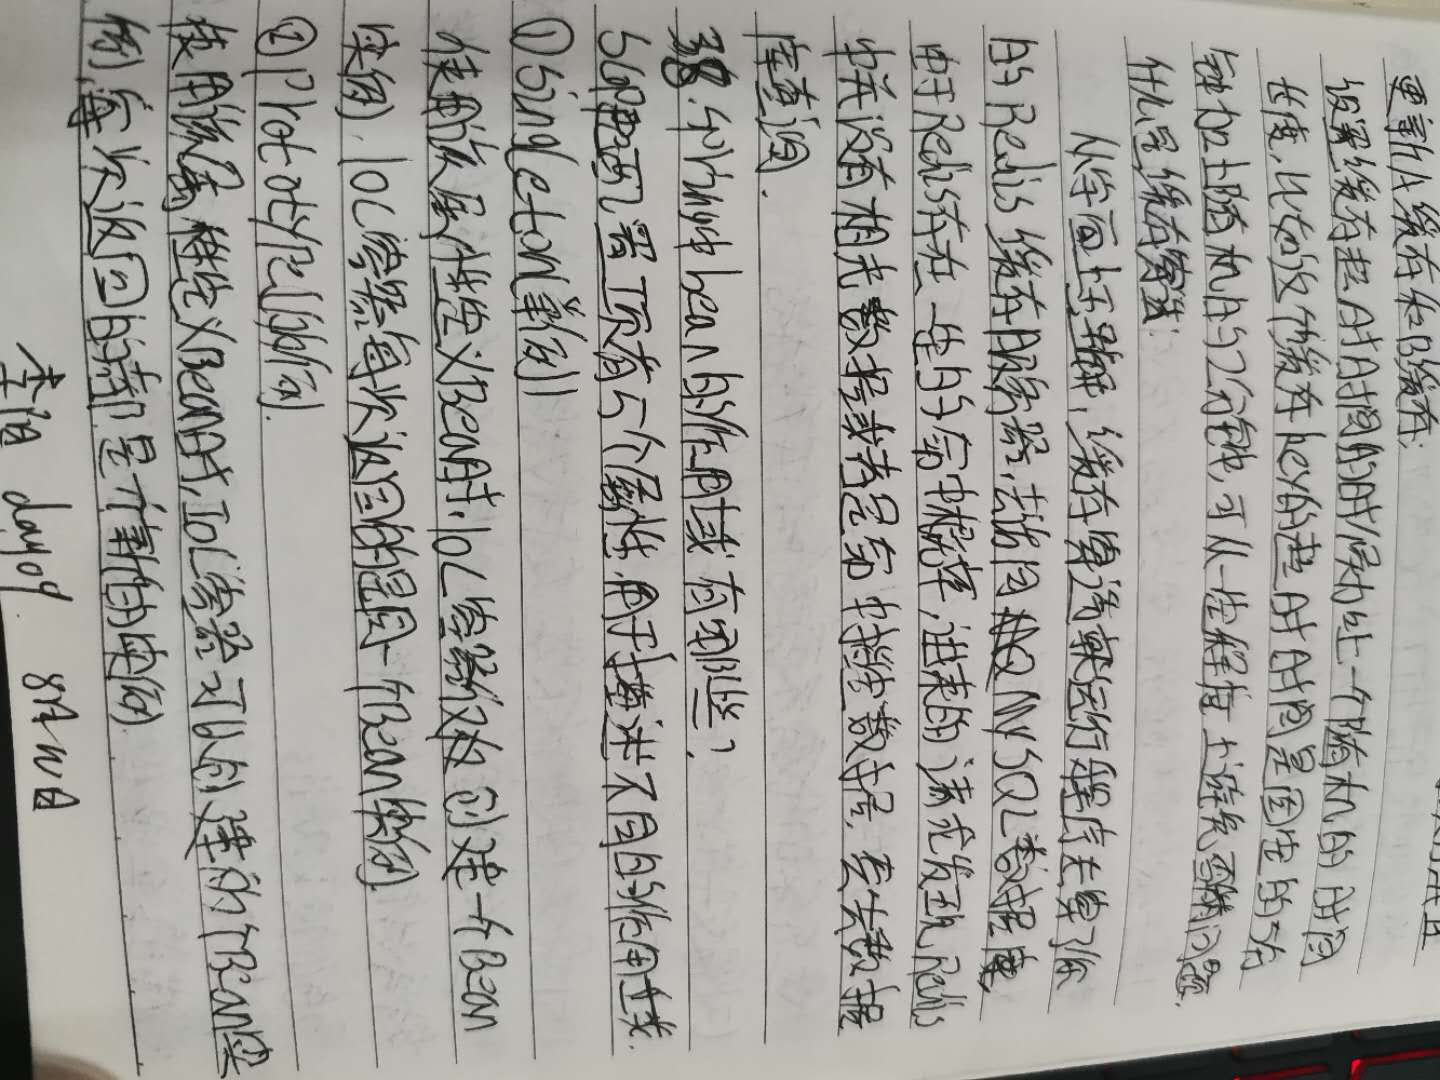 要新A缓存和B缓存.
设置缓存超时时间的时候加上一个随机的时间
长度,比如这个缓存key的超时时间是固定的5分
钟加上随机的2分钟,可从一定程度上避免雪崩问题.
什么是缓存穿透:
从字面上理解,缓存穿透就运行程序去穿了你
的Redis缓存服务器,去访问MySQL数据库,
由于Redis存在一定的命中概率,进来的请求发现Redis
中并没有相关数据或者是命中特定数据,会去数据
库查询.
38.Spring中bean的作用域有哪些?
scope配置项有5个属性,用于描述不同的作用域.
①Singleton(单例)
使用该属性定义Bean时,IOC容器仅创建一个Bean
实例,IOC容器每次返回的是同一个Bean实例
②Prototype(原
使用该属性定义Bean时,IOC容器可以创建多个Bean实
例,每次返回的都是个新的实例.
李阳 day09